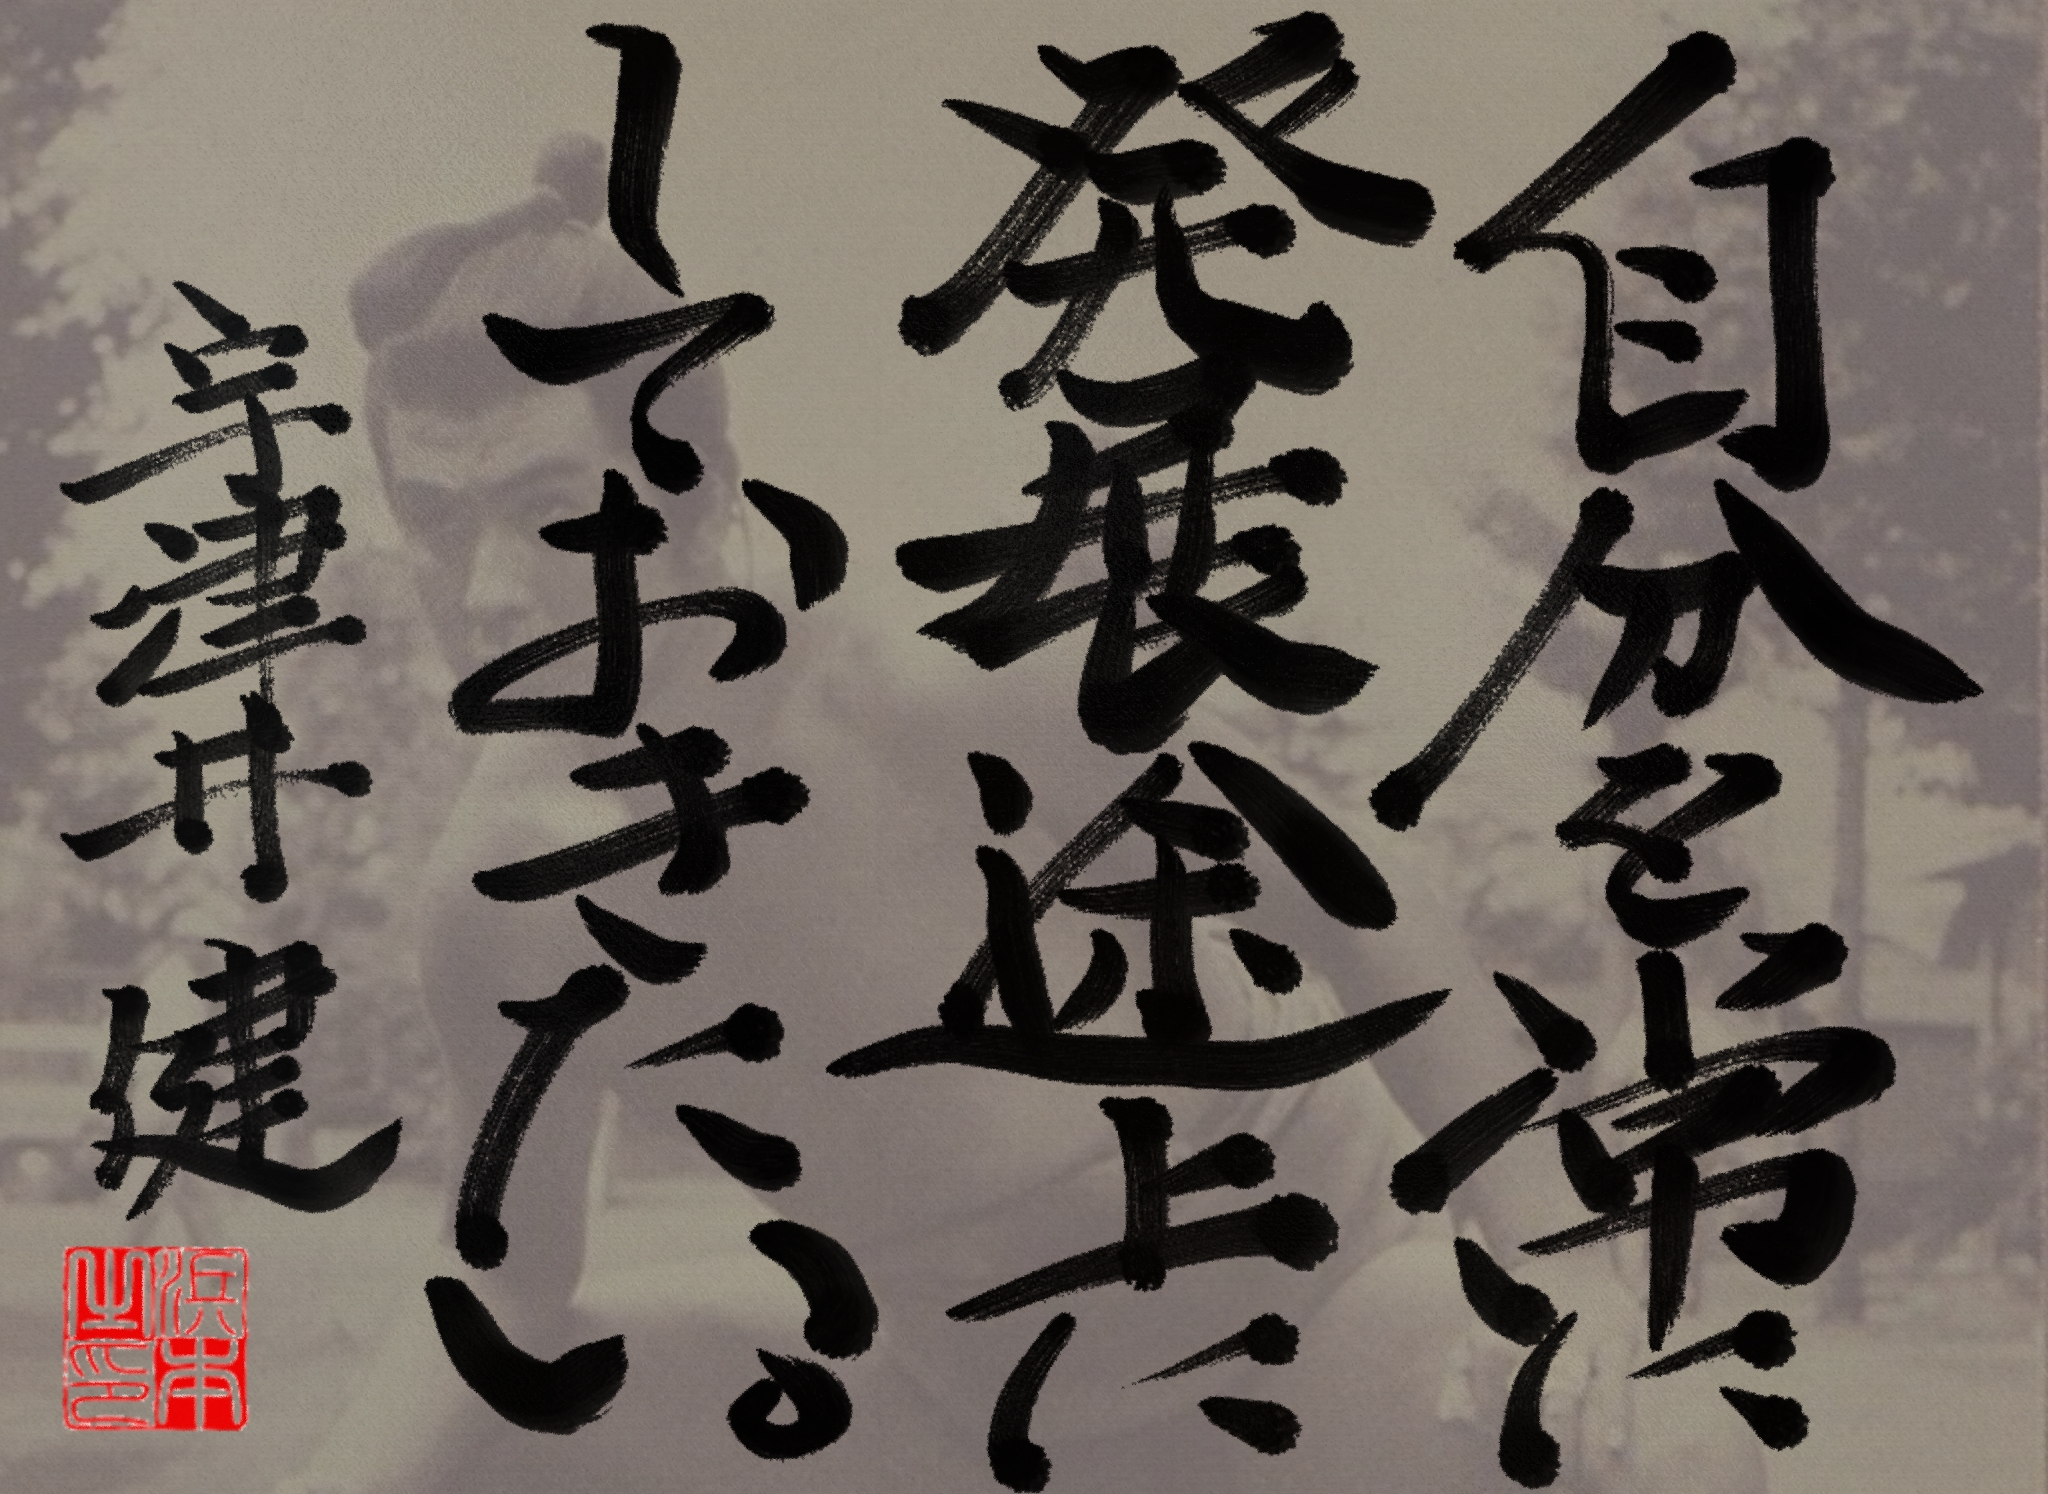 自分を常に
発展途上に
しておきたい。
宇津井健
浜本之印